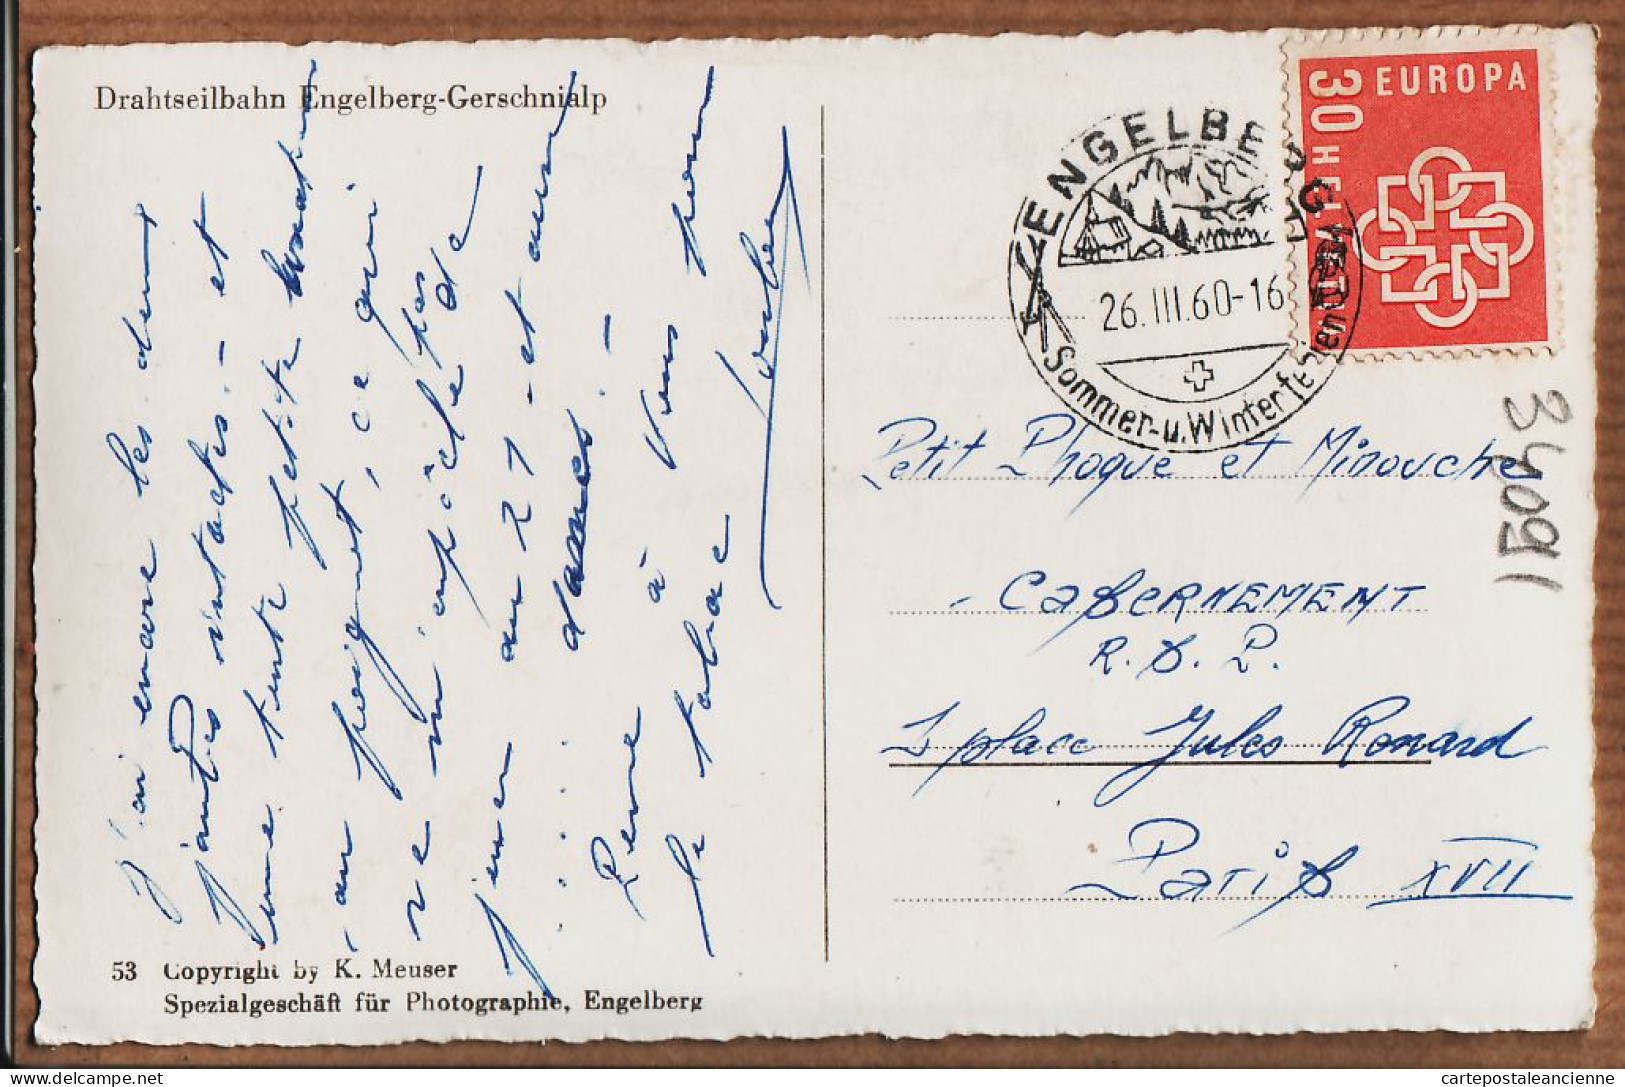 Drahtseilbahn Engelberg-Gerschnialp
J'ai encore les deux
jambes intactes - et
une toute petite
au poignet, ce qui
ne m'empêche pas de
jouer au 21 - et aux
dames -
Pense à vous pour
le tabac
53 Copyright by K. Meuser
Spezialgeschäft für Photographie, Engelberg
ENGELBERG
26.III.60-16
Sommer-u.Winterferien
EUROPA
30 HELVETIA
34091
Petit Phoque et Minouche
- CABERNEMENT
R. S. P.
place Jules Renard
Paris XVII
delcampe.net
cartepostaleancienne